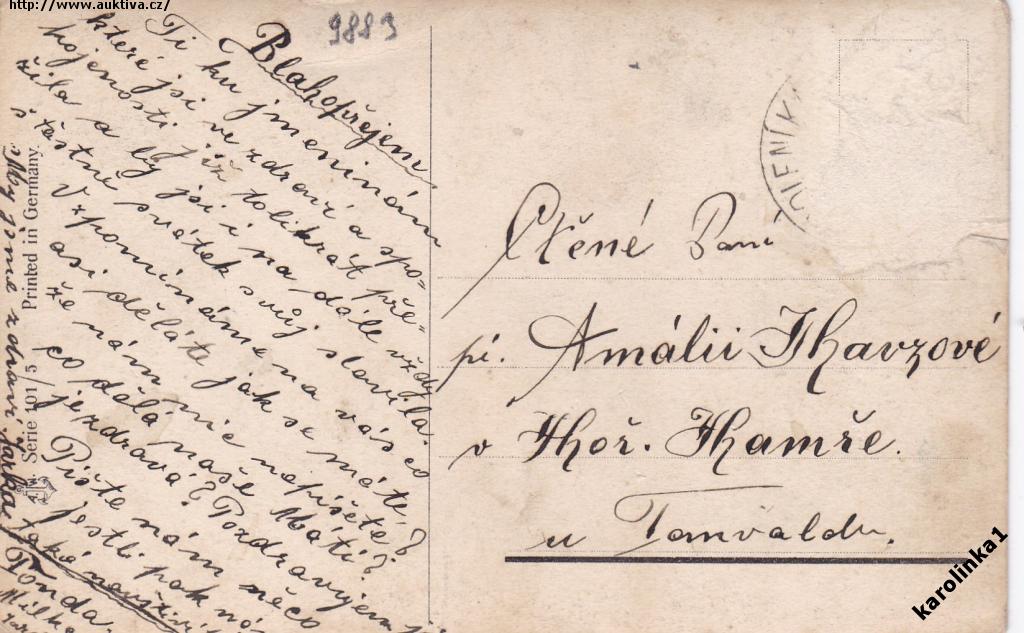 http://www.auktiva.cz/
9883
Blahopřejem
Ti ku jmeninám
které jsi ve zdraví a spo-
kojenosti již tolikrát pře-
žila a by jsi i na dále vždy
štěstně svátek svůj slavila.
Vzpomínáme na vás co
asi děláte jak se máte?
že nám nic nepíšete?
co dělá naše Máti?
je zdravá? Pozdravujem ji
Pište nám něco
jestli pak
také navštíví
Tonda
Milka
My jsme zdraví Jarka
Serie 101/5 Printed in Germany.
Ctěné Paní
pí. Amálii Thavzové
v Hoř. Hamře.
u Tanvaldu.
karolinka1